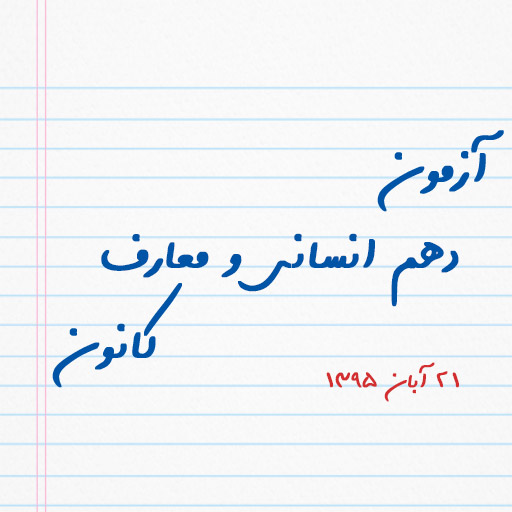 آزمون
دهم انسانی و معارف
کانون
۲۱ آبان ۱۳۹۵